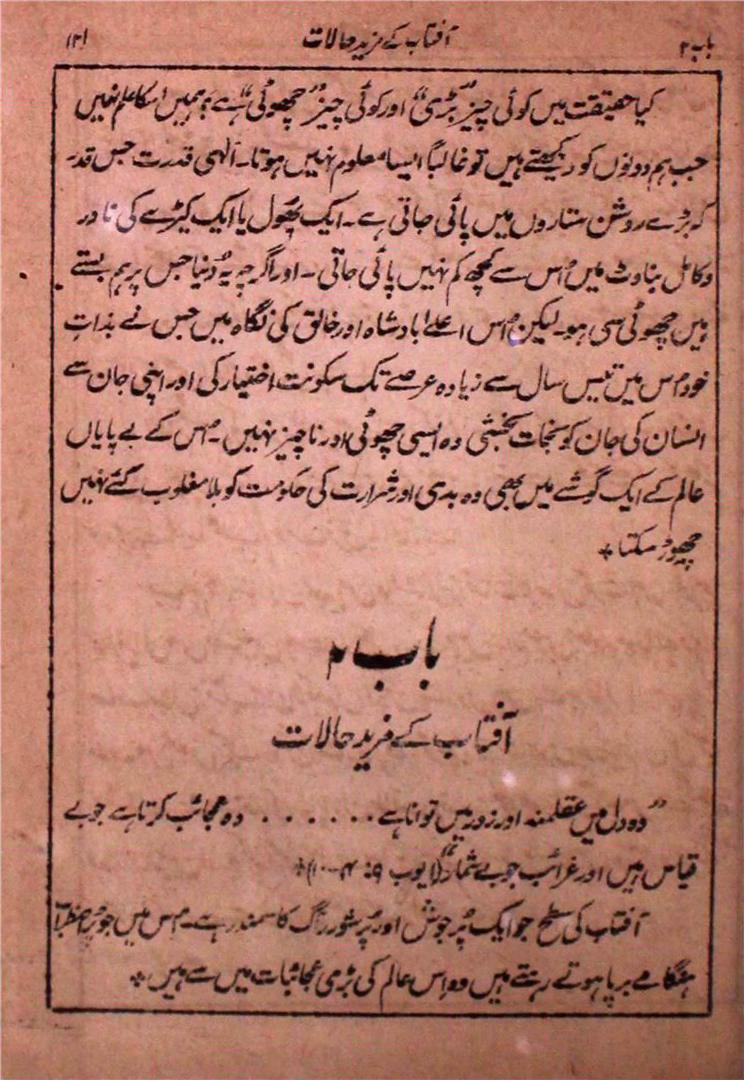 باب ۲ آفتاب کے مزید حالات ۱۳۱
کیا حقیقت میں کوئی چیز "بڑی" اور کوئی چیز "چھوٹی" ہے؟ ہمیں اسکا علم نہیں
جب ہم دونوں کو دیکھتے ہیں تو غالباً ایسا معلوم نہیں ہوتا۔ الٰہی قدرت جس قدر
کہ بڑے روشن ستاروں میں پائی جاتی ہے۔ ایک پھول یا ایک کیڑے کی نادر
و کامل بناوٹ میں اُس سے کچھ کم نہیں پائی جاتی ۔ اور اگرچہ یہ دُنیا جس پر ہم بستے
ہیں چھوٹی سی ہو۔ لیکن اُس اعلےٰ بادشاہ اور خالق کی نگاہ میں جس نے بذاتِ
خود اس میں تیس سال سے زیادہ عرصے تک سکونت اختیار کی اور اپنی جان سے
انسان کی جان کو نجات بخشی وہ ایسی چھوٹی اور ناچیز نہیں ۔ اِس کے بے پایاں
عالم کے ایک گوشے میں بھی وہ بدی اور شرارت کی حکومت کو بلا مغلوب کئے نہیں
چھوڑ سکتا ٭
باب ۲
آفتاب کے مزید حالات
"وہ دل میں عقلمند اور زور میں توانا ہے . . . . . . وہ عجائب کرتا ہے جو بے
قیاس ہیں اور غرائب جو بے شمار" (ایوب ۹: ۴-۱۰)٭
آفتاب کی سطح جو ایک پُر جوش اور پُر شور آگ کا سمندر ہے۔ اس میں جو
ہنگامے برپا ہوتے رہتے ہیں وہ اِس عالم کی بڑی عجائبات میں سے ہیں ٭